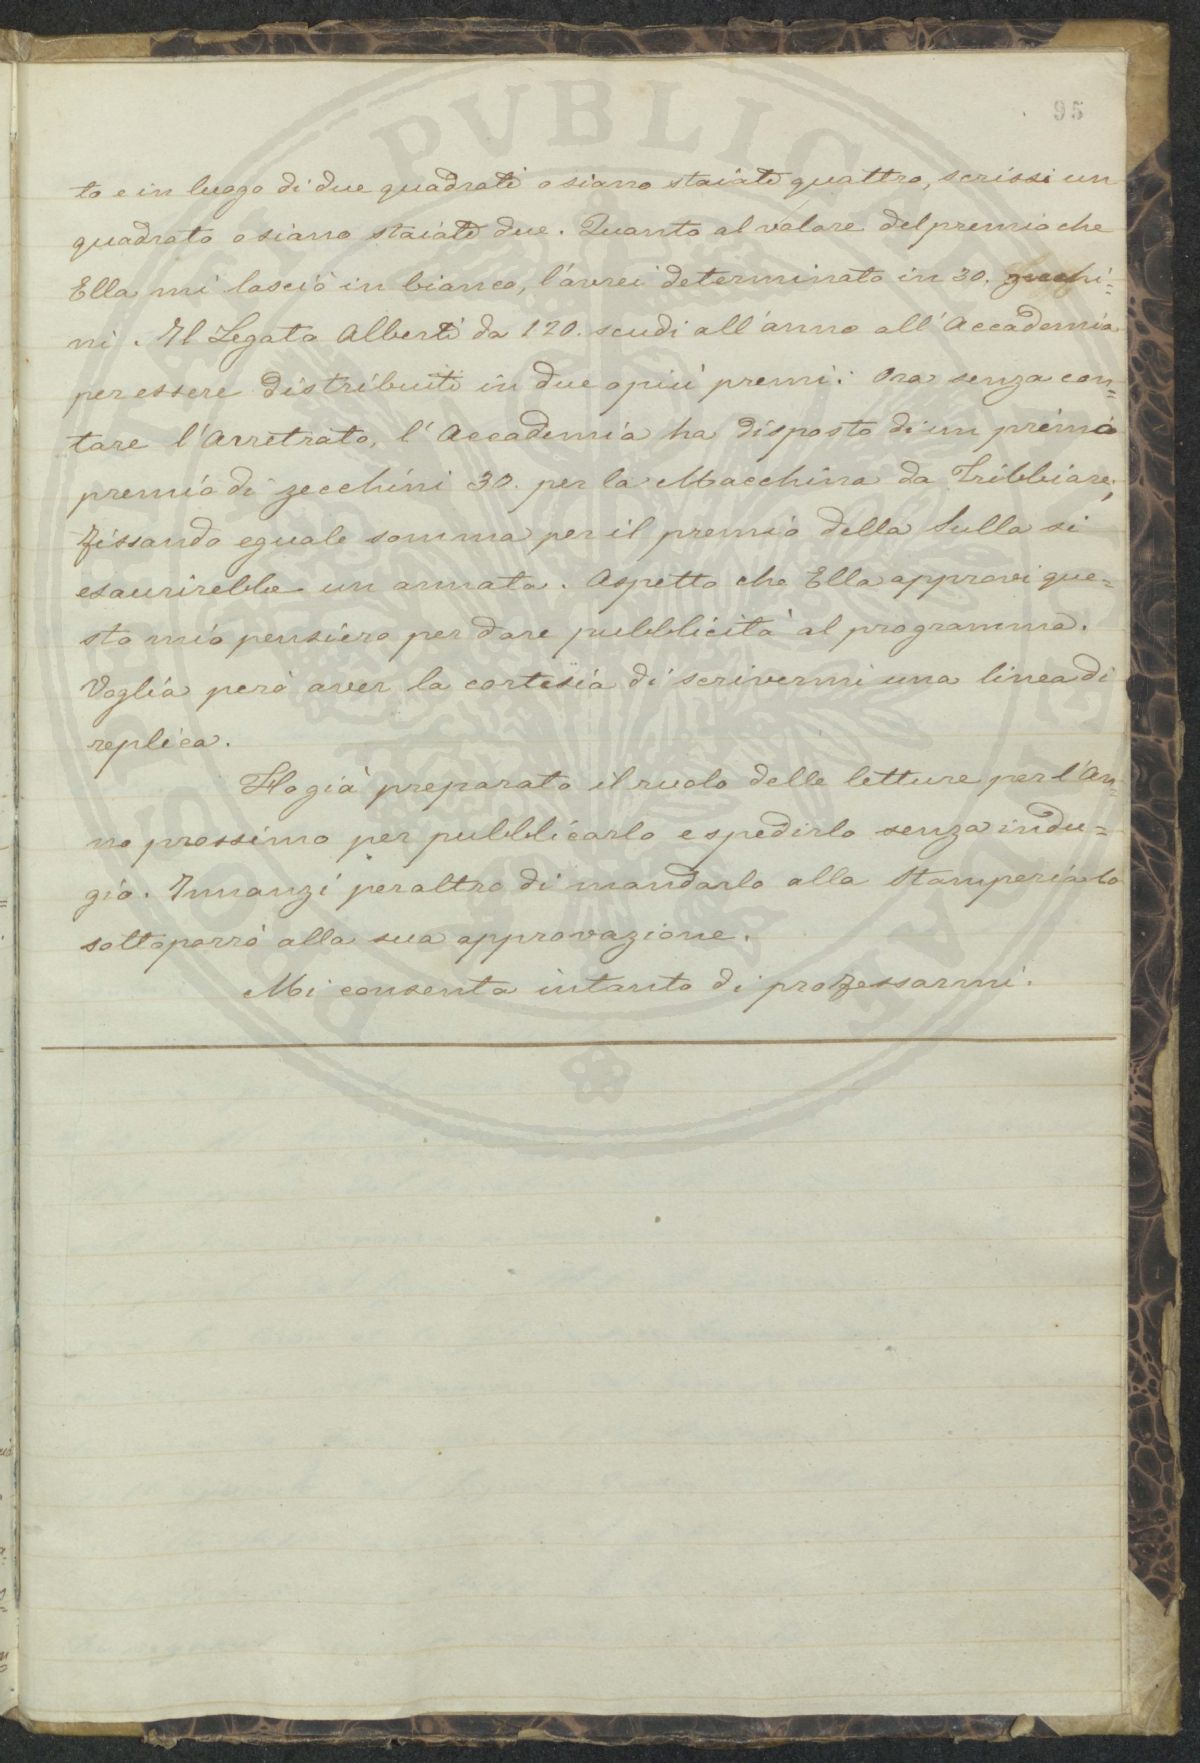 95
to e in luogo di due quadrati o siano staiate quattro, scrissi un
quadrato o siano staiate due. Quanto al valore del premio che
Ella mi lasciò in bianco, l'avrei determinato in 30. zecchi=
ni. Il Legato Alberti da 120. scudi all'anno all'Accademia
per essere distribuiti in due o più premi: Ora senza con=
tare l'Arretrato, l'Accademia ha disposto di un primo
premio di zecchini 30. per la Macchina da Tribbiare;
fissando eguale somma per il premio della Sulla si
esaurirebbe un annata. Aspetto che Ella approvi que=
sto mio pensiero per dare pubblicità al programma.
Voglia però aver la cortesia di scrivermi una linea di
replica.
Ho già preparato il ruolo delle letture per l'An=
no prossimo per pubblicarlo e spedirlo senza indu=
gio. Innanzi peraltro di mandarlo alla Stamperia lo
sottoporrò alla sua approvazione.
Mi consenta intanto di professarmi.